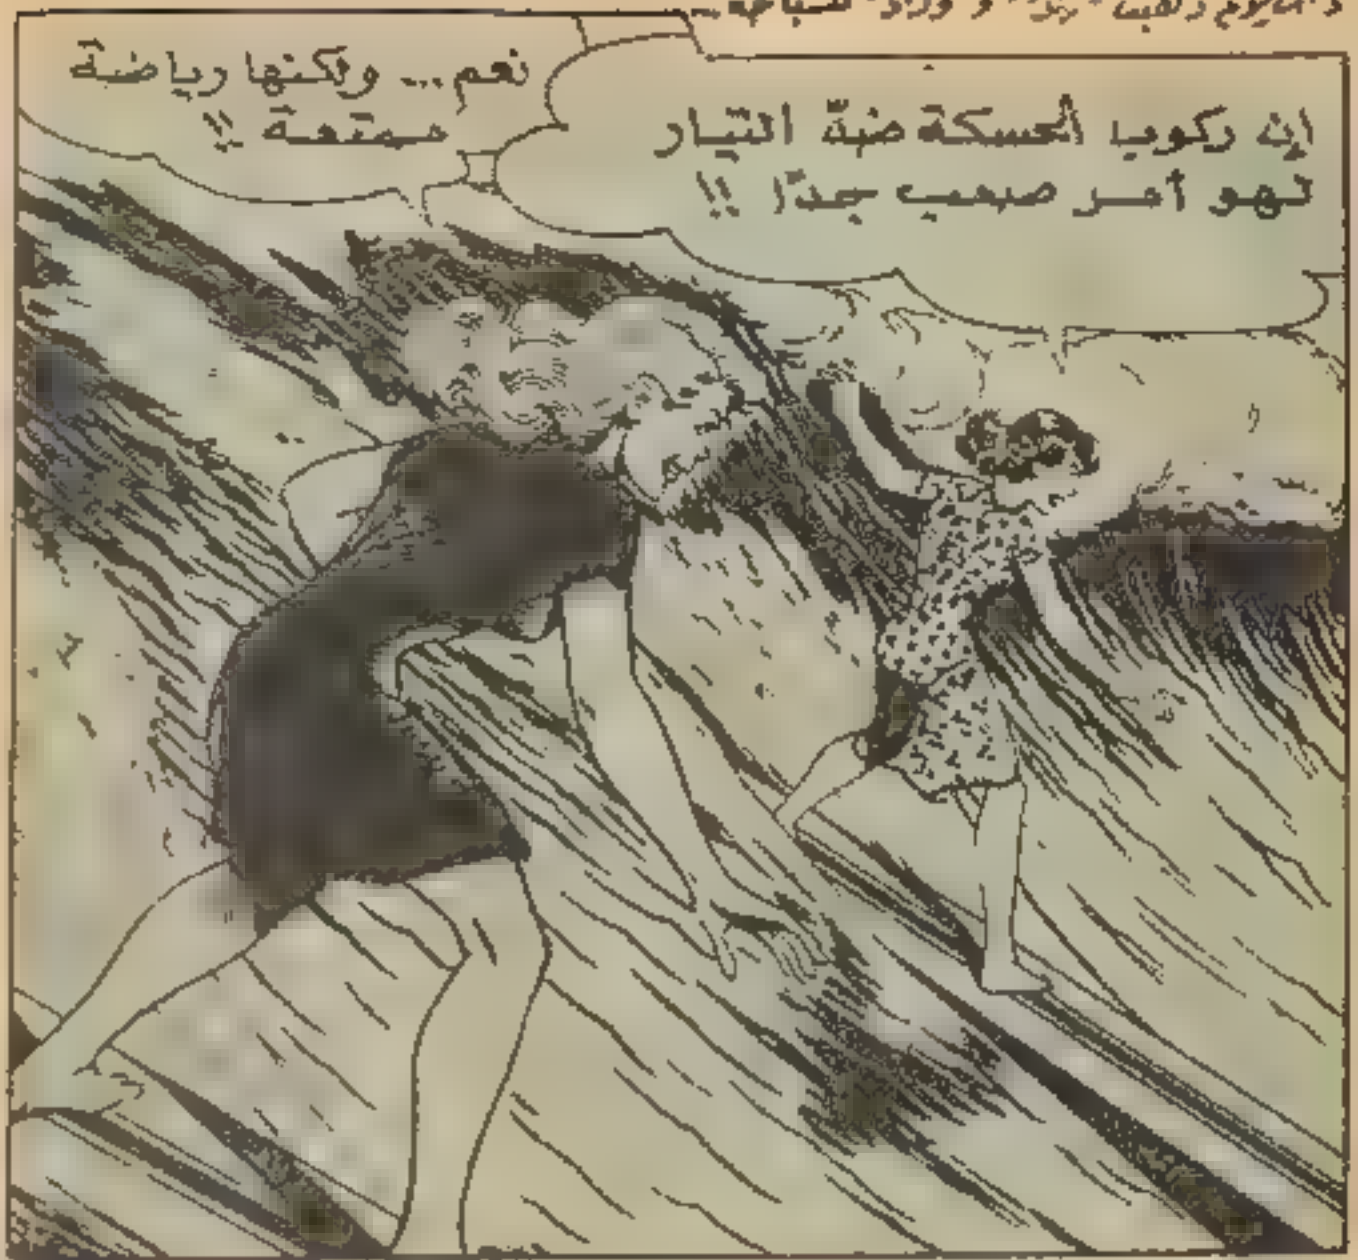 إن ركوب الحسكة ضدّ التيار
لهو أمر صعب جدّا !!
نعم... ولكنها رياضة
ممتعة !!